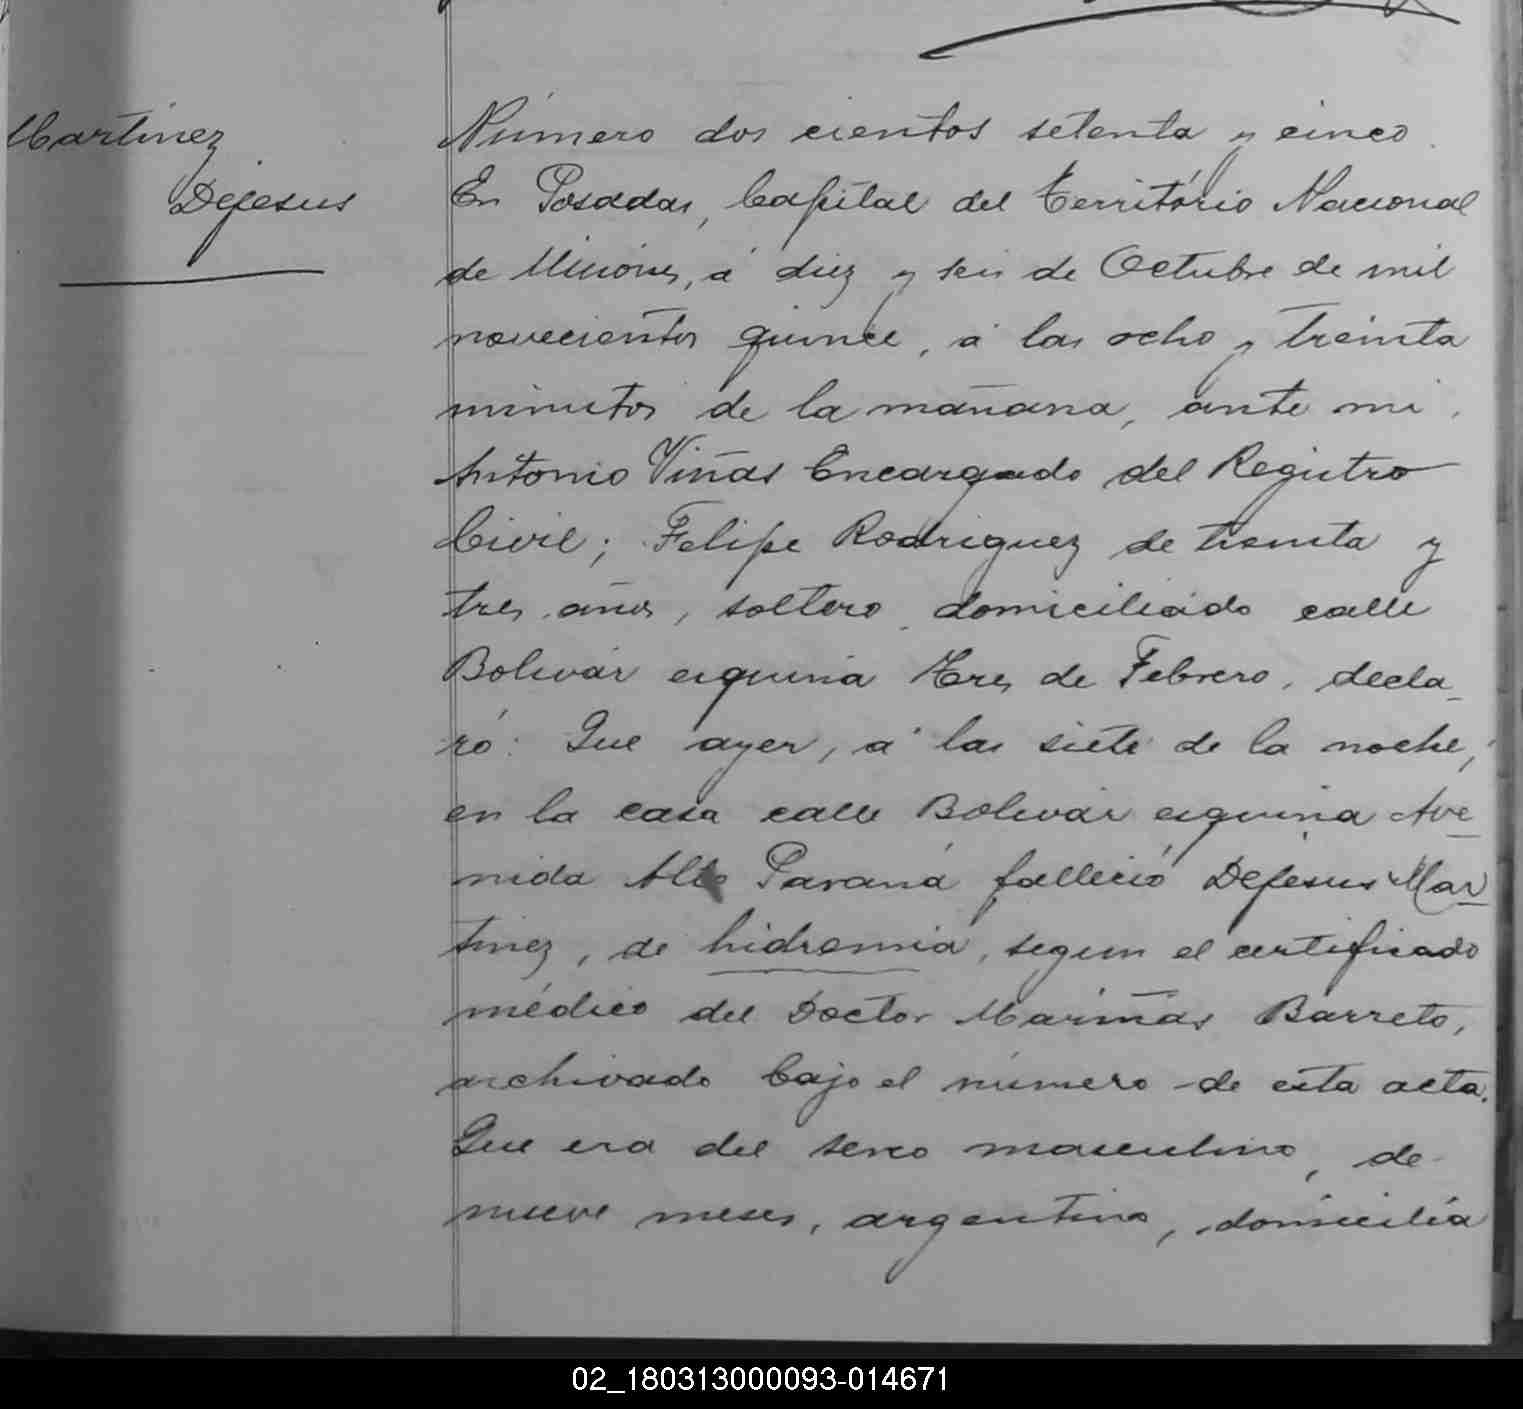 Martinez
Dejesus
Número dos cientos setenta y cinco.
En Posadas, Capital del Território Nacional
de Misiones, á diez y seis de Octubre de mil
novecientos quince, á las ocho y treinta
minutos de la mañana, ante mi,
Antonio Viñas Encargado del Registro
Civil; Felipe Rodriguez de treinta y
tres años, soltero domiciliado calle
Bolivar esquina Tres de Febrero, decla-
ró: Que ayer, á las siete de la noche,
en la casa calle Bolivar esquina Ave-
nida Alto Paraná falleció Dejesus Mar-
tinez, de hidremia, segun el certificado
médico del Doctor Mariñas Barreto,
archivado bajo el número de esta acta.
Que era del sexo masculino, de
nueve meses, argentino, domicilia
02_180313000093-014671